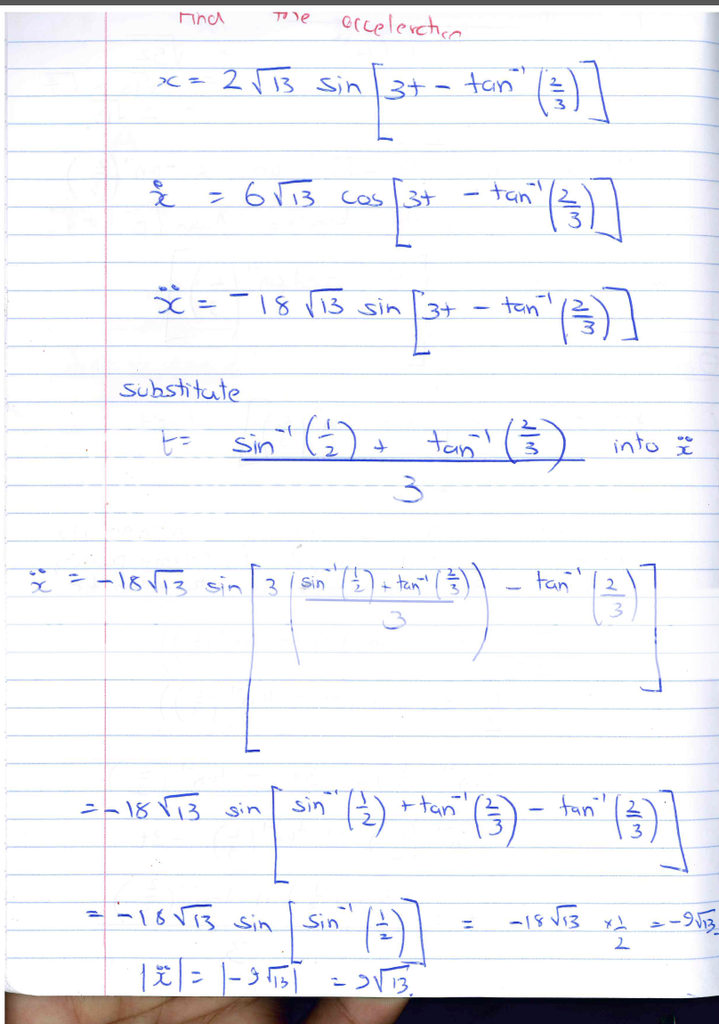 Find the acceleration
x = 2√13 sin [3t − tan⁻¹ (2/3)]
ẋ = 6√13 cos [3t − tan⁻¹ (2/3)]
ẍ = −18√13 sin [3t − tan⁻¹ (2/3)]
substitute
t = (sin⁻¹ (1/2) + tan⁻¹ (2/3)) / 3 into ẍ
ẍ = −18√13 sin [3 ((sin⁻¹ (1/2) + tan⁻¹ (2/3)) / 3) − tan⁻¹ (2/3)]
= −18√13 sin [sin⁻¹ (1/2) + tan⁻¹ (2/3) − tan⁻¹ (2/3)]
= −18√13 sin [sin⁻¹ (1/2)] = −18√13 × 1/2 = −9√13
|ẍ| = |−9√13| = 9√13